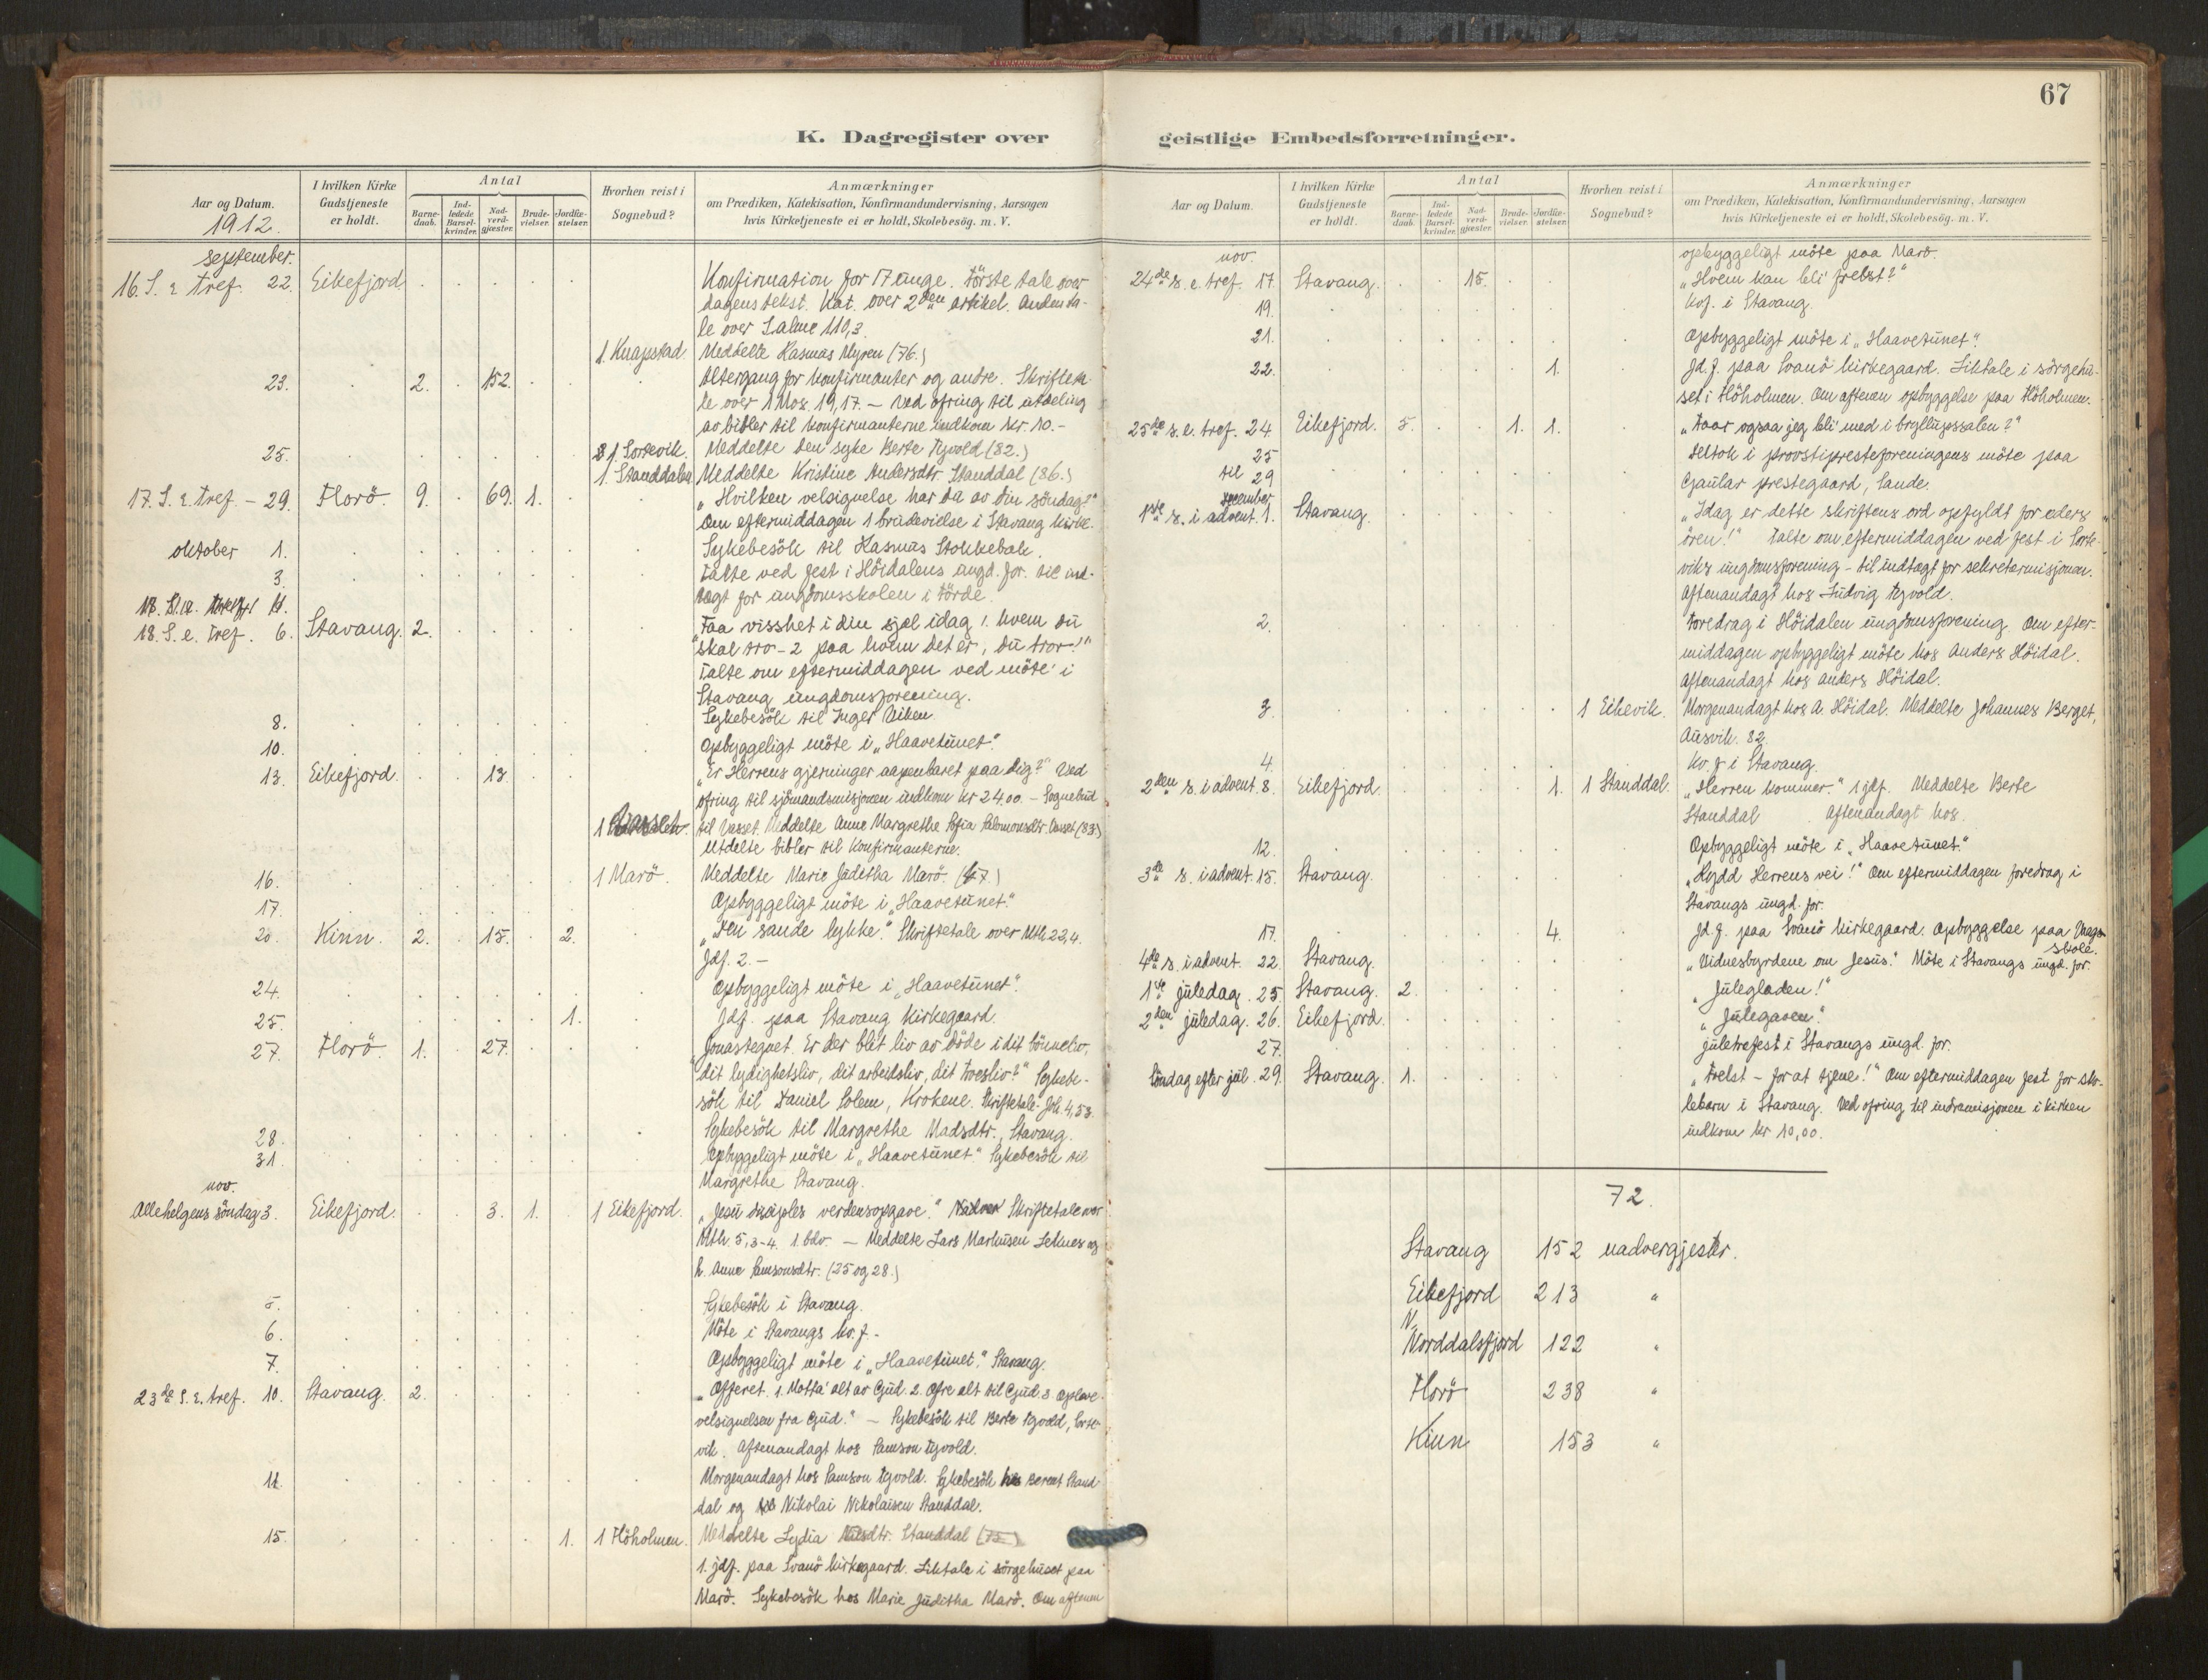 67
K. Dagregister over geistlige Embedsforretninger.
Aar og Datum.
1912.
I hvilken Kirke Gudstjeneste er holdt.
Antal
Barnedaab.
Indledede Barselkvinder.
Nadverdgjæster.
Brudevielser.
Jordfæstelser.
Hvorhen reist i Sognebud?
Anmærkninger
om Prædiken, Katekisation, Konfirmandundervisning, Aarsagen
hvis Kirketjeneste ei er holdt, Skolebesög. m. V.
september.
16. S. e. tref. 22. Eikefjord Konfirmation for 17 unge. Förste tale over
dagens tekst. Kat. over 2den artikel. Anden ta-
le over Salme 119,3.
1. Knapstad. Meddelte Rasmus Myren (76.)
23. 2. 152. Altergang for konfirmanter og andre. Skrifteta-
le over 1 Mos. 19,17. – Ved ofring til utdeling
av bibler til konfirmanterne indkom kr. 10.-
25. 1 Sortevik. Meddelte den syke Berte Tyvold (82.)
1. Standdalen Meddelte Kristine Andersdtr. Standdal (86.)
17. S. e. tref – 29. Florö. 9. 69. 1. „Hvilken velsignelse har du av din söndag?"
Om eftermiddagen 1 brudevielse i Stavang kirke.
oktober 1. Sykebesök til Rasmus Stokkebak.
3. Talte ved fest i Höidalens ungd. for. til ind-
tægt for ungdomsskolen i Förde.
18. S. e. tref. 6. Stavang. 2. „Faa visshet i din sjæl idag 1. hvem du
skal tro – 2 paa hvem det er, du tror!"
Talte om eftermiddagen ved möte i
Stavang ungdomsforening.
8. Sykebesök til Inger Aiken
10. Opbyggeligt möte i „Haavetunet".
13. Eikefjord. 13. „Er Herrens gjerninger aapenbaret paa dig?" Ved
ofring til sjömandsmisjonen indkom kr 24.00. – Sognebud
1 til Vasset. Meddelte Anne Margrethe Sofia Salomonsdtr. Vasset (83.)
Utdelte bibler til konfirmanterne.
16. 1 Marö. Meddelte Marie Juditha Marö.
17. Opbyggeligt möte i „Haavetunet."
20. Kinn. 2. 15. 2. „Den sande lykke." Skriftetale over Mth 22,4.
Jdf. 2. –
24. Opbyggeligt möte i „Haavetunet".
25. 1. Jdf. paa Stavang kirkegaard.
27. Florö. 1. 27. „Jonastegnet. Er der blit liv av döde i dit bönneliv,
dit lydighetsliv, dit arbeidsliv, dit troesliv?" Sykebe-
sök til Daniel Solem, Krokene. Skriftetale Joh. 4,53.
28. Sykebesök til Margrethe Madsdtr., Stavang.
31. Opbyggeligt möte i „Haavetunet." Sykebesök til
Margrethe Stavang.
nov.
Allehelgens söndag 3. Eikefjord. 3. 1. 1 Eikefjord. „Jesu disiples verdensopgave." Skriftetale over
Mth. 5,3-4. 1. bdv. – Meddelte Lars Markusen Sednes og
h. Anne Samsonsdtr. (25 og 28.)
5. Sykebesök i Stavang.
6. Möte i Stavangs kv. f. -
7. Opbyggeligt möte i „Haavetunet." Stavang.
23de S. e. tref. 10. Stavang. 2. „Offeret. 1. Motta alt av Gud. 2. Ofre alt til Gud. 3 Opleve
velsignelsen fra Gud." – Sykebesök til Berte Tyvold, Sorte-
vik. Aftenandagt hos Samson Tyvold.
11. Morgenandagt hos Samson Tyvold. Sykebesök hos Berent Stand-
dal og Nikolai Nikolaisen Standdal.
15. 1. 1 Höholmen. Meddelte Lydia Nilsdtr. Standdal
1. jdf. paa Svanö kirkegaard. Liktale i sörgehuset paa
Marö. Sykebesök hos Marie Juditha Marö. Om aftenen
Aar og Datum.
I hvilken Kirke Gudstjeneste er holdt.
Antal
Barnedaab.
Indledede Barselkvinder.
Nadverdgjæster.
Brudevielser.
Jordfæstelser.
Hvorhen reist i Sognebud?
Anmærkninger
om Prædiken, Katekisation, Konfirmandundervisning, Aarsagen
hvis Kirketjeneste ei er holdt, Skolebesög. m. V.
nov. opbyggeligt möte paa Marö.
24de s. e. tref. 17. Stavang. 15. „Hvem kan bli frelst?"
19. Kvf. i Stavang.
21. Opbyggeligt möte i „Haavetunet".
22. 1. Jd. f. paa Svanö kirkegaard. Liktale i sörgehu-
set i Höholmen. Om aftenen opbyggelse paa Höholmen.
25de s. e. tref. 24. Eikefjord. 5. 1. 1. „Faar ogsaa jeg bli med i bryllupssalen?"
25 Deltok i provstipresteforeningens möte paa
til 29 Gaular prestegaard, Sande.
december
1ste s. i advent. 1. Stavang. „Idag er dette skriftens ord opfyldt for eders
ören!" Talte om eftermiddagen ved fest i Sorte-
viks ungdomsforening – til indtægt for sekretærmisjonen.
Aftenandagt hos Ludvig Tyvold.
2. Foredrag i Höidalen ungdomsforening. Om efter-
middagen opbyggeligt möte hos Anders Höidal.
Aftenandagt hos Anders Höidal.
3. 1 Eikevik. Morgenandagt hos A. Höidal. Meddelte Johannes Berget,
Ausvik. 82.
4. Kv. f. i Stavang.
2den s. i advent. 8. Eikefjord. 1. 1 Standdal. „Herren kommer." 1 jdf. Meddelte Berte
Standdal Aftenandagt hos
12. Opbyggeligt möte i „Haavetunet."
3de s. i advent. 15. Stavang. „Rydd Herrens vei!" Om eftermiddagen foredrag i
Stavangs ungd. for.
17. 4. Jd. f. paa Svanö kirkegaard. Opbyggelse paa
skole.
4de s. i advent. 22. Stavang. „Vidnesbyrdene om Jesus." Möte i Stavangs ungd. for.
1ste juledag. 25. Stavang. 2. „Juleglæden!"
2den juledag. 26. Eikefjord. „Julegaven."
27. Juletrefest i Stavangs ungd. for.
Söndag efter jul. 29. Stavang. 1. „Frelst – for at tjene!" Om eftermiddagen fest for sko-
lebarn i Stavang. Ved ofring til indremisjonen i kirken
indkom kr 10,00.
72.
Stavang 152 nadvergjester.
Eikefjord 213 "
N.
Norddalsfjord 122 "
Florö 238 "
Kinn 153 "